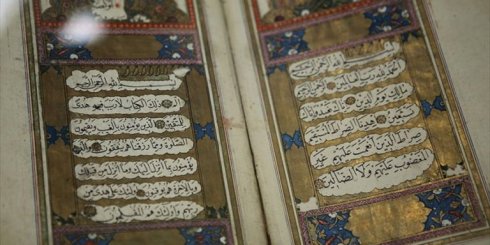 بسم الله الرحمن الرحيم
الحمد لله رب العالمين
الرحمن الرحيم مالك يوم الدين
اياك نعبد واياك نستعين
اهدنا الصراط المستقيم
صراط الذين انعمت عليهم غير
المغضوب عليهم ولا الضالين
بسم الله الرحمن الرحيم
الم ذلك الكتاب لا ريب فيه هدى
للمتقين الذين يؤمنون بالغيب ويقيمون
الصلوة ومما رزقناهم
يؤمنون بما انزل اليك وما انزل من
وبالاخرة هم يوقنون اولئك على هدى من
ربهم واولئك هم المفلحون